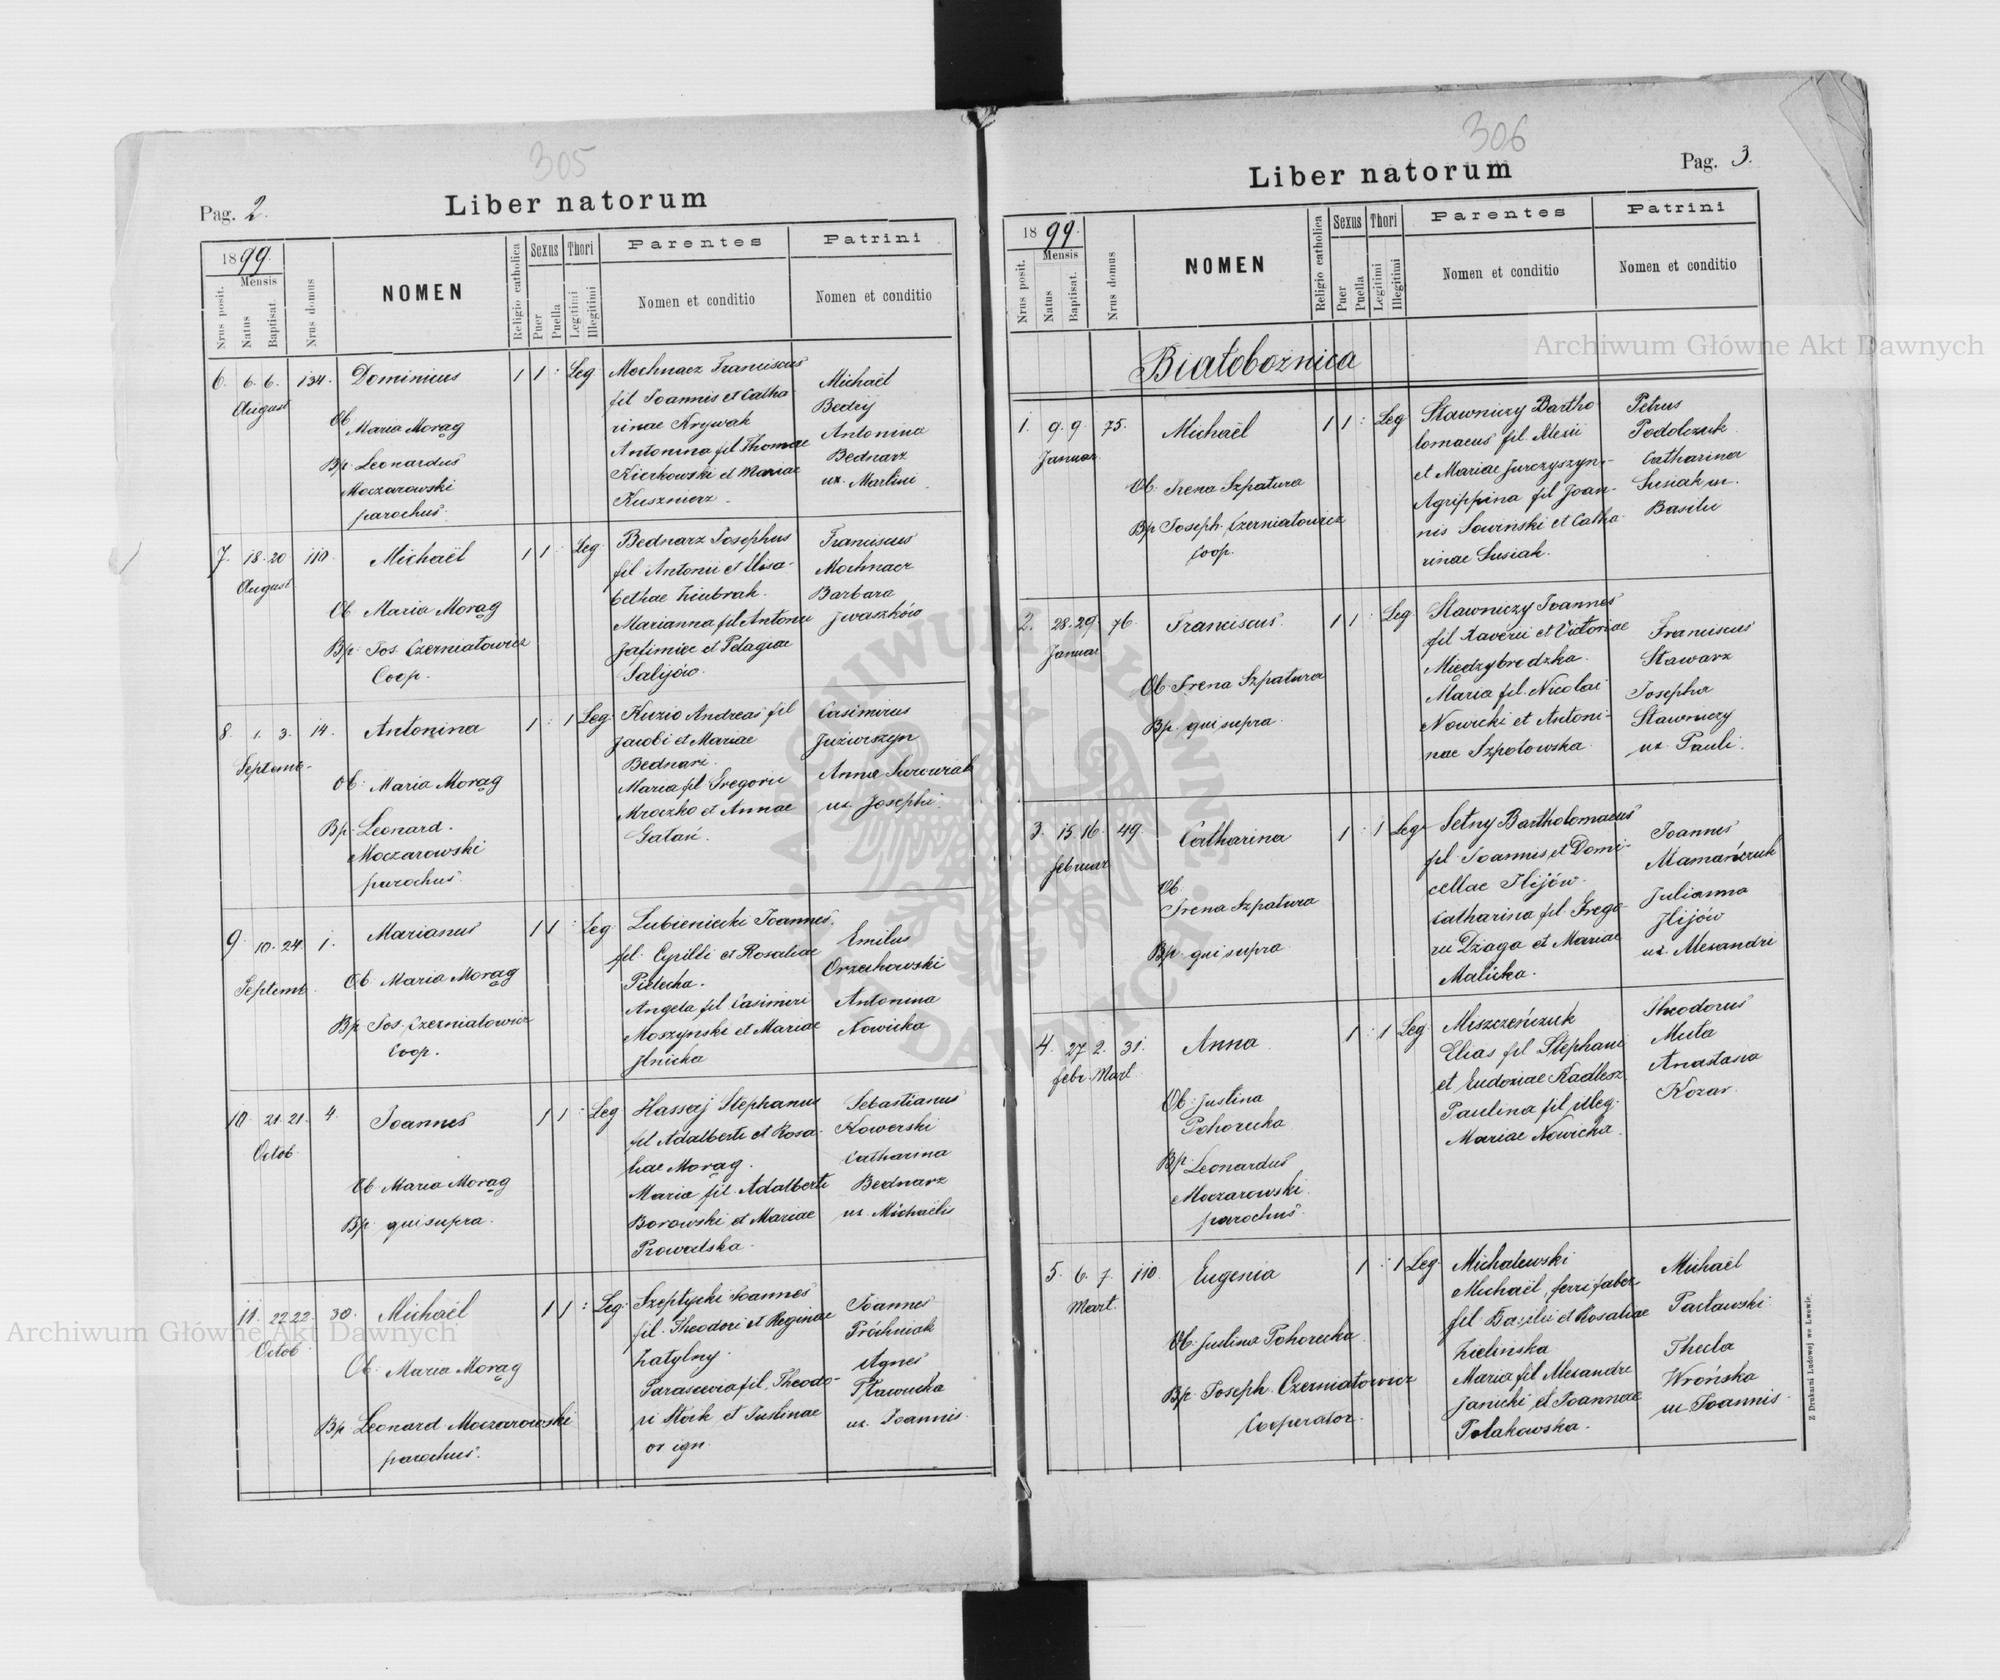 305
Pag. 2.
Liber natorum
1899.
Mensis
Nrus posit.
Natus
Baptisat.
Nrus domus
NOMEN
Religio catholica
Sexus
Puer
Puella
Thori
Legitimi
Illegitimi
Parentes
Nomen et conditio
Patrini
Nomen et conditio
6. 6. 6. 134.
August
Dominicus
Ob
Maria Morąg
Bp. Leonardus
Moczarowski
parochus.
1 1 : Leg
Mochnacz Franciscus
fil Joannis et Catha
rinae Krywak
Antonina fil Thomae
Kierkowski et Mariae
Kusznierz.
Michaël
Bedrij
Antonina
Bednarz
ux. Martini
7. 18. 20 110.
August
Michaël
Ob Maria Morąg
Bp. Jos. Czerniatowicz
Coop.
1 1 : Leg.
Bednarz Josephus
fil. Antonii et Elisa-
bethae Ziubrak.
Marianna fil Antonii
Jafimiec et Pelagiae
Salijów.
Franciscus
Mochnacz
Barbara
Iwaszków
8. 1. 3. 14.
Septemb.
Antonina
Ob. Maria Morąg
Bp. Leonard.
Moczarowski
parochus.
1 : 1 Leg.
Kuzio Andreas fil
Jacobi et Mariae
Bednarz.
Maria fil Gregorii
Mroczko et Annae
Casimirus
Anna
ux. Josephi.
9. 10. 24. 1.
Septemb.
Marianus
Ob Maria Morąg
Bp. Jos. Czerniatowicz
Coop.
1 1 : Leg.
Lubieniecki Joannes.
fil. Cyrilli et Rosaliae
Angela fil Casimiri
Moszynski et Mariae
Ilnicka
Emilus
Orzechowski
Antonina
Nowicka
10. 21. 21. 4.
Octob
Joannes
Ob Maria Morąg
Bp. qui supra.
1 1 : Leg
Hassaj Stephanus
fil Adalberti et Rosa-
liae Morąg.
Maria fil. Adalberti
Borowski et Mariae
Prowalska.
Sebastianus
Kowerski
Catharina
Bednarz
ux. Michaëlis
11. 22. 22. 30.
Octob.
Michaël
Ob. Maria Morąg
Bp Leonard Moczarowski
parochus.
1 1 : Leg.
Szeptycki Joannes
fil. Theodori et Reginae
Zatylny.
Parascevia fil. Theodo-
ri Stock et Justinae
or ign.
Joannes
Próchniak
Agnes
ux. Joannis.
306
Liber natorum
Pag. 3.
1899.
Mensis
Nrus posit.
Natus
Baptisat.
Nrus domus
NOMEN
Religio catholica
Sexus
Puer
Puella
Thori
Legitimi
Illegitimi
Parentes
Nomen et conditio
Patrini
Nomen et conditio
Białobożnica
1. 9. 9. 75.
Januar
Michaël
Ob. Irena Szpatura
Bp Joseph. Czerniatowicz
Coop.
1 1 : Leg
Stawniczy Bartho
lomaeus fil. Alexii
et Mariae Jurczyszyn.
Agrippina fil Joan-
nis Sowiński et Catha
rinae Susiak.
Petrus
Podolczuk
Catharina
Susiak ux.
Basilii
2. 28. 29. 76.
Januar
Franciscus.
Ob Irena Szpatura
Bp. qui supra.
1 1 : Leg
Stawniczy Joannes
fil Xaverii et Victoriae
Międzybrodzka.
Maria fil. Nicolai
Nowicki et Antoni-
nae Szpotowska.
Franciscus
Stawarz
Josepha
Stawniczy
ux. Pauli.
3. 15. 16. 49.
Februar
Catharina
Ob.
Irena Szpatura
Bp. qui supra.
1 : 1 Leg
Setny Bartholomaeus
fil. Joannis et Domi-
cellae Ilijów.
Catharina fil. Grego-
rii Dzaga et Mariae
Malicka.
Joannes
Mamańczuk
Julianna
Ilijów
ux. Alexandri
4. 27 2. 31.
Febr. Mart.
Anna
Ob. Justina
Pohorecka
Bp. Leonardus
Moczarowski.
parochus.
1 : 1 Leg
Miszczeńczuk
Elias fil Stephani
et Eudoxiae Kadlesz.
Paulina fil illeg.
Mariae Nowicka.
Theodorus
Muta
Anastasia
Kozar.
5. 6. 7. 110.
Mart.
Eugenia
Ob. Justina Pohorecka
Bp. Joseph Czerniatowicz
Cooperator.
1 : 1 Leg.
Michalewski
Michaël, ferri faber
fil. Basilii et Rosaliae
Zielinska.
Maria fil Alexandri
Janicki et Joannae
Polakowska.
Michaël
Pacławski
Thecla
Wrońska
ux Joannis.
Z Drukarni Ludowej we Lwowie.
Archiwum Główne Akt Dawnych
Archiwum Główne Akt Dawnych
ARCHIWUM GŁÓWNE AKT DAWNYCH